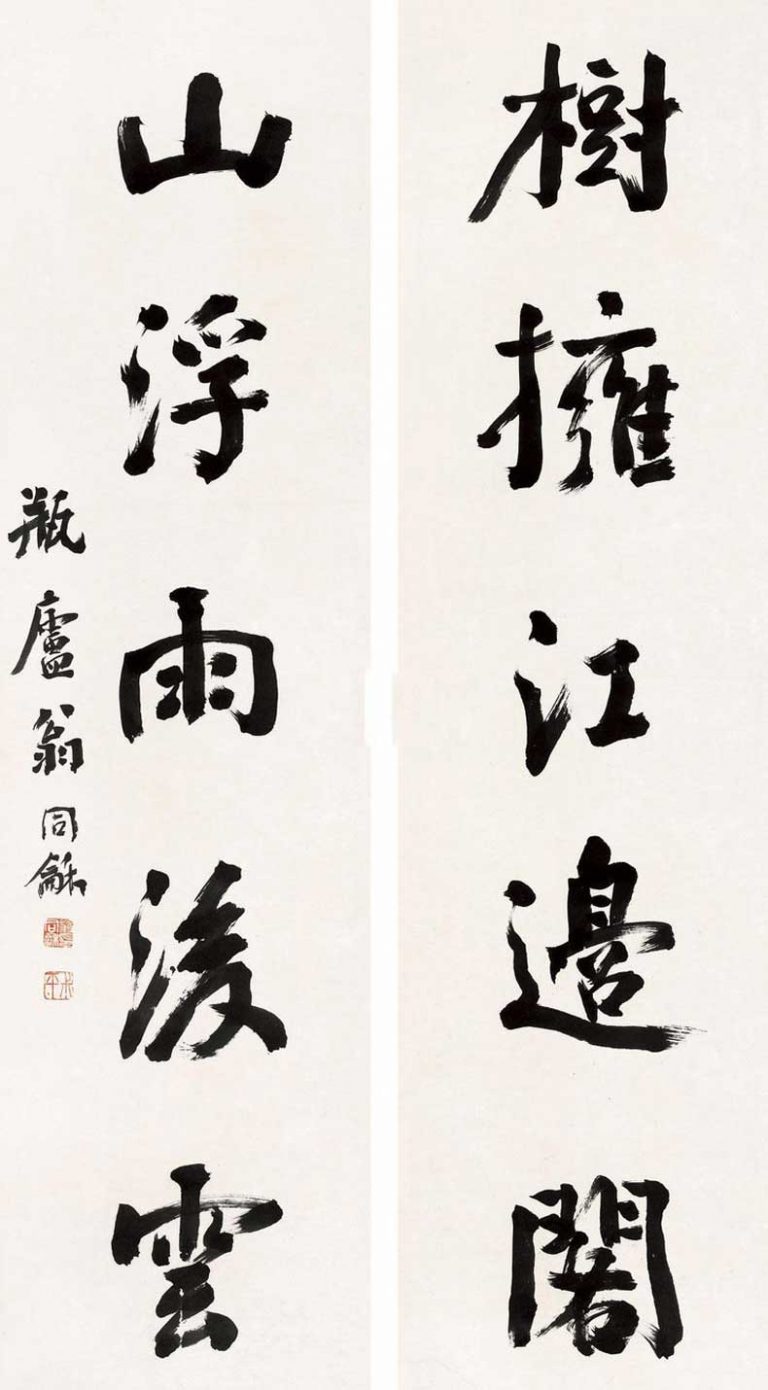 樹擁江邊閣
山浮雨後雲
瓶廬翁同龢